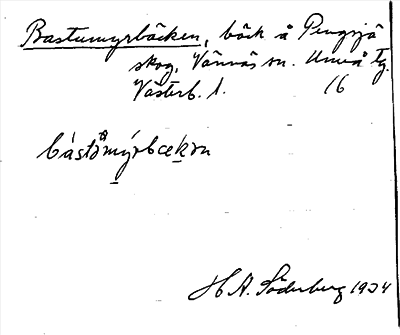 Bastumyrbäcken, bäck å Pengsjö
skog, Vännäs sn. Umeå tg.
Västerb. l. 16
H. A. Söderberg 1934